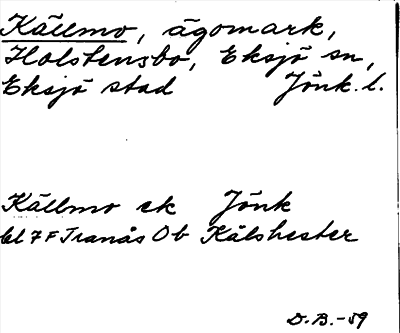 Källmo, ägomark,
Holstensbo, Eksjö sn,
Eksjö stad Jönk. l.
Källmo ek Jönk
bl 7F Tranås Ob Kålshester
D.B.-59